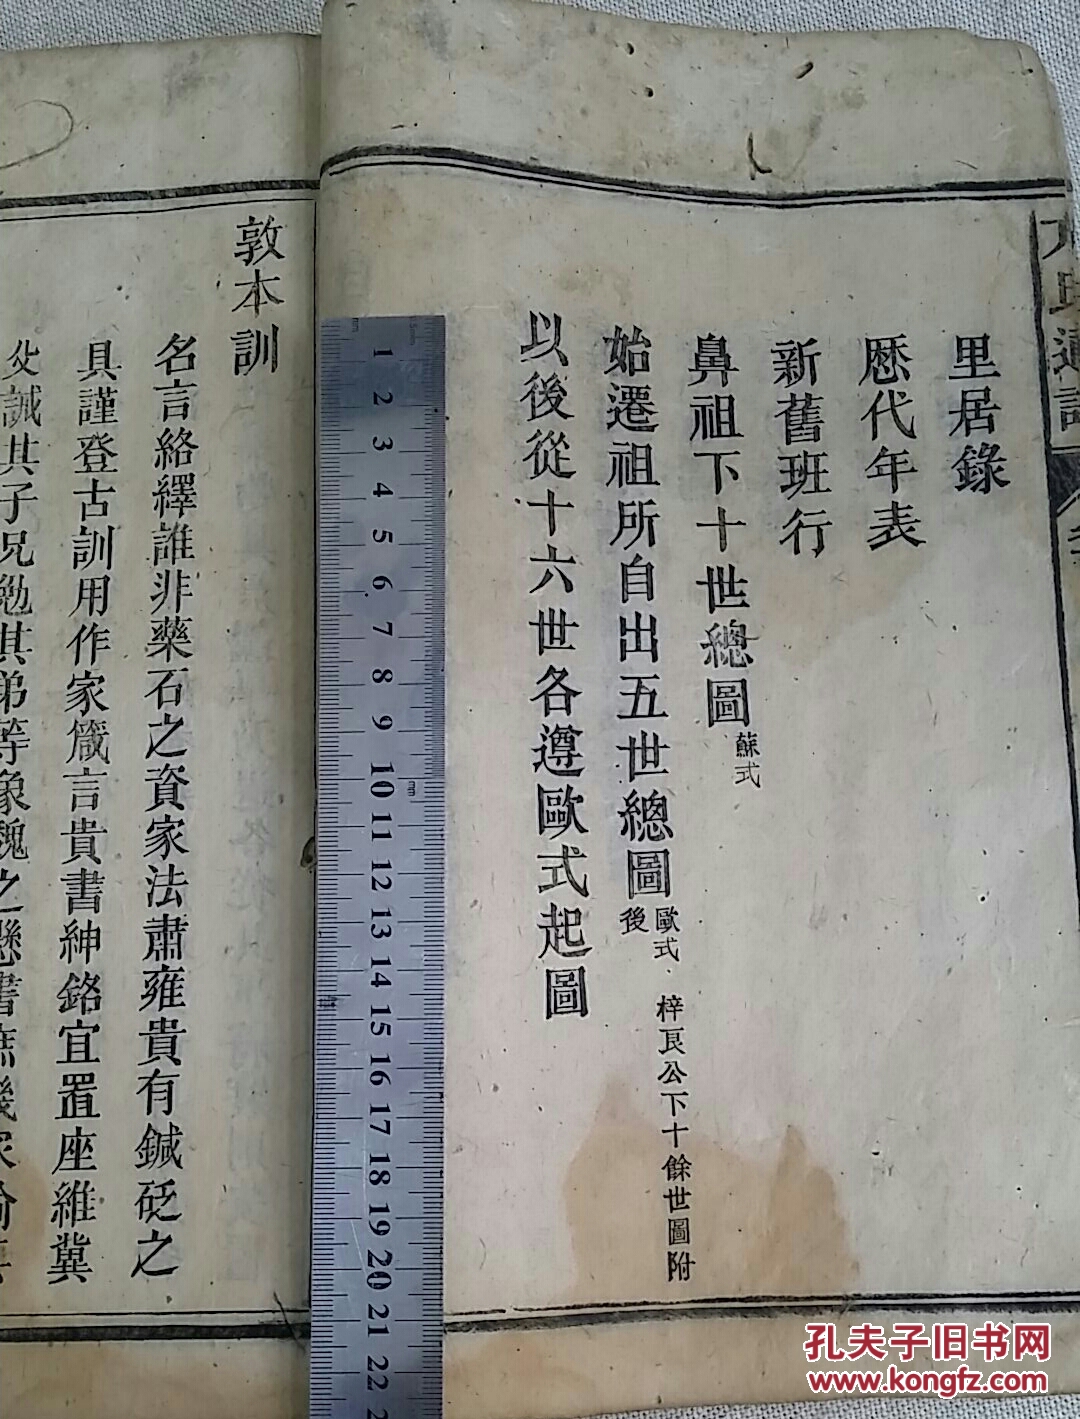 里居錄
歷代年表
新舊班行
鼻祖下十世總圖蘇式
始遷祖所自出五世總圖歐式後 梓良公下十餘世圖附
以後從十六世各遵歐式起圖
敦本訓
名言絡繹誰非藥石之資家法肅雍貴有鍼砭之
具謹登古訓用作家箴言貴書紳銘宜置座維冀
父誡其子兄勉其弟等象魏之懸書
1
2
3
4
5
6
7
8
9
10
11
12
13
14
15
16
17
18
19
20
21
22
孔夫子旧书网
www.kongfz.com